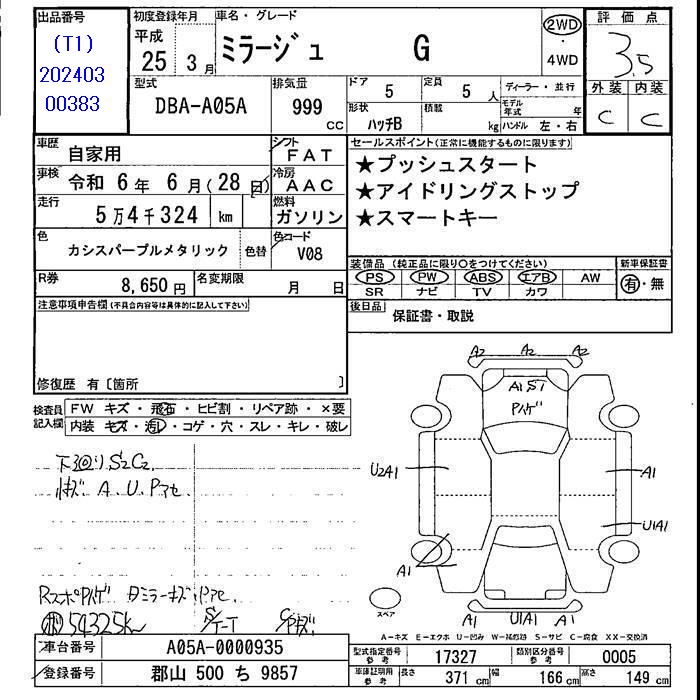 出品番号
(T1)
202403
00383
初度登録年月
平成
25 3 月
車名・グレード
ミラージュ G
2WD
・
4WD
評価点
3.5
外装 内装
C C
型式
DBA-A05A
排気量
999
CC
ドア 5
定員 5 人
形状 ハッチB
積載 kg
ディーラー・並行
モデル年式 年
ハンドル 左・右
車歴 自家用
シフト FAT
車検 令和 6年 6月(28日)
冷房 AAC
走行 5万4千324 km
燃料 ガソリン
色 カシスパープルメタリック 色替
色コード V08
R券 8,650円
名変期限 月 日
セールスポイント(正常に機能するものに限ります)
★プッシュスタート
★アイドリングストップ
★スマートキー
装備品(純正品に限り○をつけてください)
新車保証書
PS PW ABS エアB AW
有・無
SR ナビ TV カワ
後日品 保証書・取説
注意事項申告欄(不具合内容等は具体的に記入して下さい)
修復歴 有〔箇所 〕
検査員記入欄
FW キズ・飛石・ヒビ割・リペア跡・×要
内装 キズ・汚レ・コゲ・穴・スレ・キレ・破レ
下回りS2C2
小キズ A、U、Pアセ
54325km
A2 A2 A2
A1 S1
Pハゲ
U2A1
A1
U1A1
A1
スペア
A1 U1A1 A1
A-キズ E-エクボ U-凹み W-補修跡 S-サビ C-腐食 XX-交換済
車台番号 A05A-0000935
登録番号 郡山 500 ち 9857
型式指定番号 参考 17327
類別区分番号 参考 0005
車庫証明用 参考 長さ 371 cm 幅 166 cm 高さ 149 cm